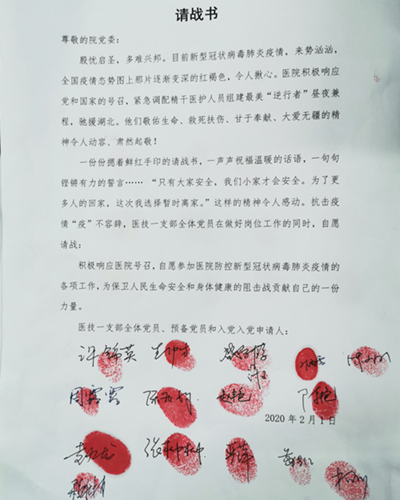 请战书
尊敬的院党委：
殷忧启圣，多难兴邦。目前新型冠状病毒肺炎疫情，来势汹汹，
全国疫情态势图上那片逐渐变深的红褐色，令人揪心。医院积极响应
党和国家的号召，紧急调配精干医护人员组建最美“逆行者”昼夜兼
程，驰援湖北。他们敬佑生命、救死扶伤、甘于奉献、大爱无疆的精
神令人动容、肃然起敬！
一份份摁着鲜红手印的请战书，一声声祝福温暖的话语，一句句
铿锵有力的誓言……“只有大家安全，我们小家才会安全。为了更
多人的回家，这次我选择暂时离家。”这样的精神令人感动。抗击疫
情“疫”不容辞，医技一支部全体党员在做好岗位工作的同时，自愿
请战：
积极响应医院号召，自愿参加医院防控新型冠状病毒肺炎疫情的
各项工作，为保卫人民生命安全和身体健康的阻击战贡献自己的一份
力量。
医技一支部全体党员、预备党员和入党入党申请人：
许锦英
2020 年 2 月 1 日